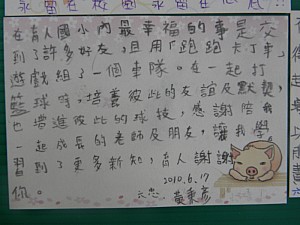 在育人國小內最幸福的事是交
到了許多好友，且用「跑跑卡丁車」
遊戲組了一個車隊。在一起打
籃球時，培養彼此的友誼及默契，
也增進彼此的球技，感謝陪我
一起成長的老師及朋友，讓我學
習到了更多新知，育人謝謝
你。
2010.6.17
六忠 黃秉彥